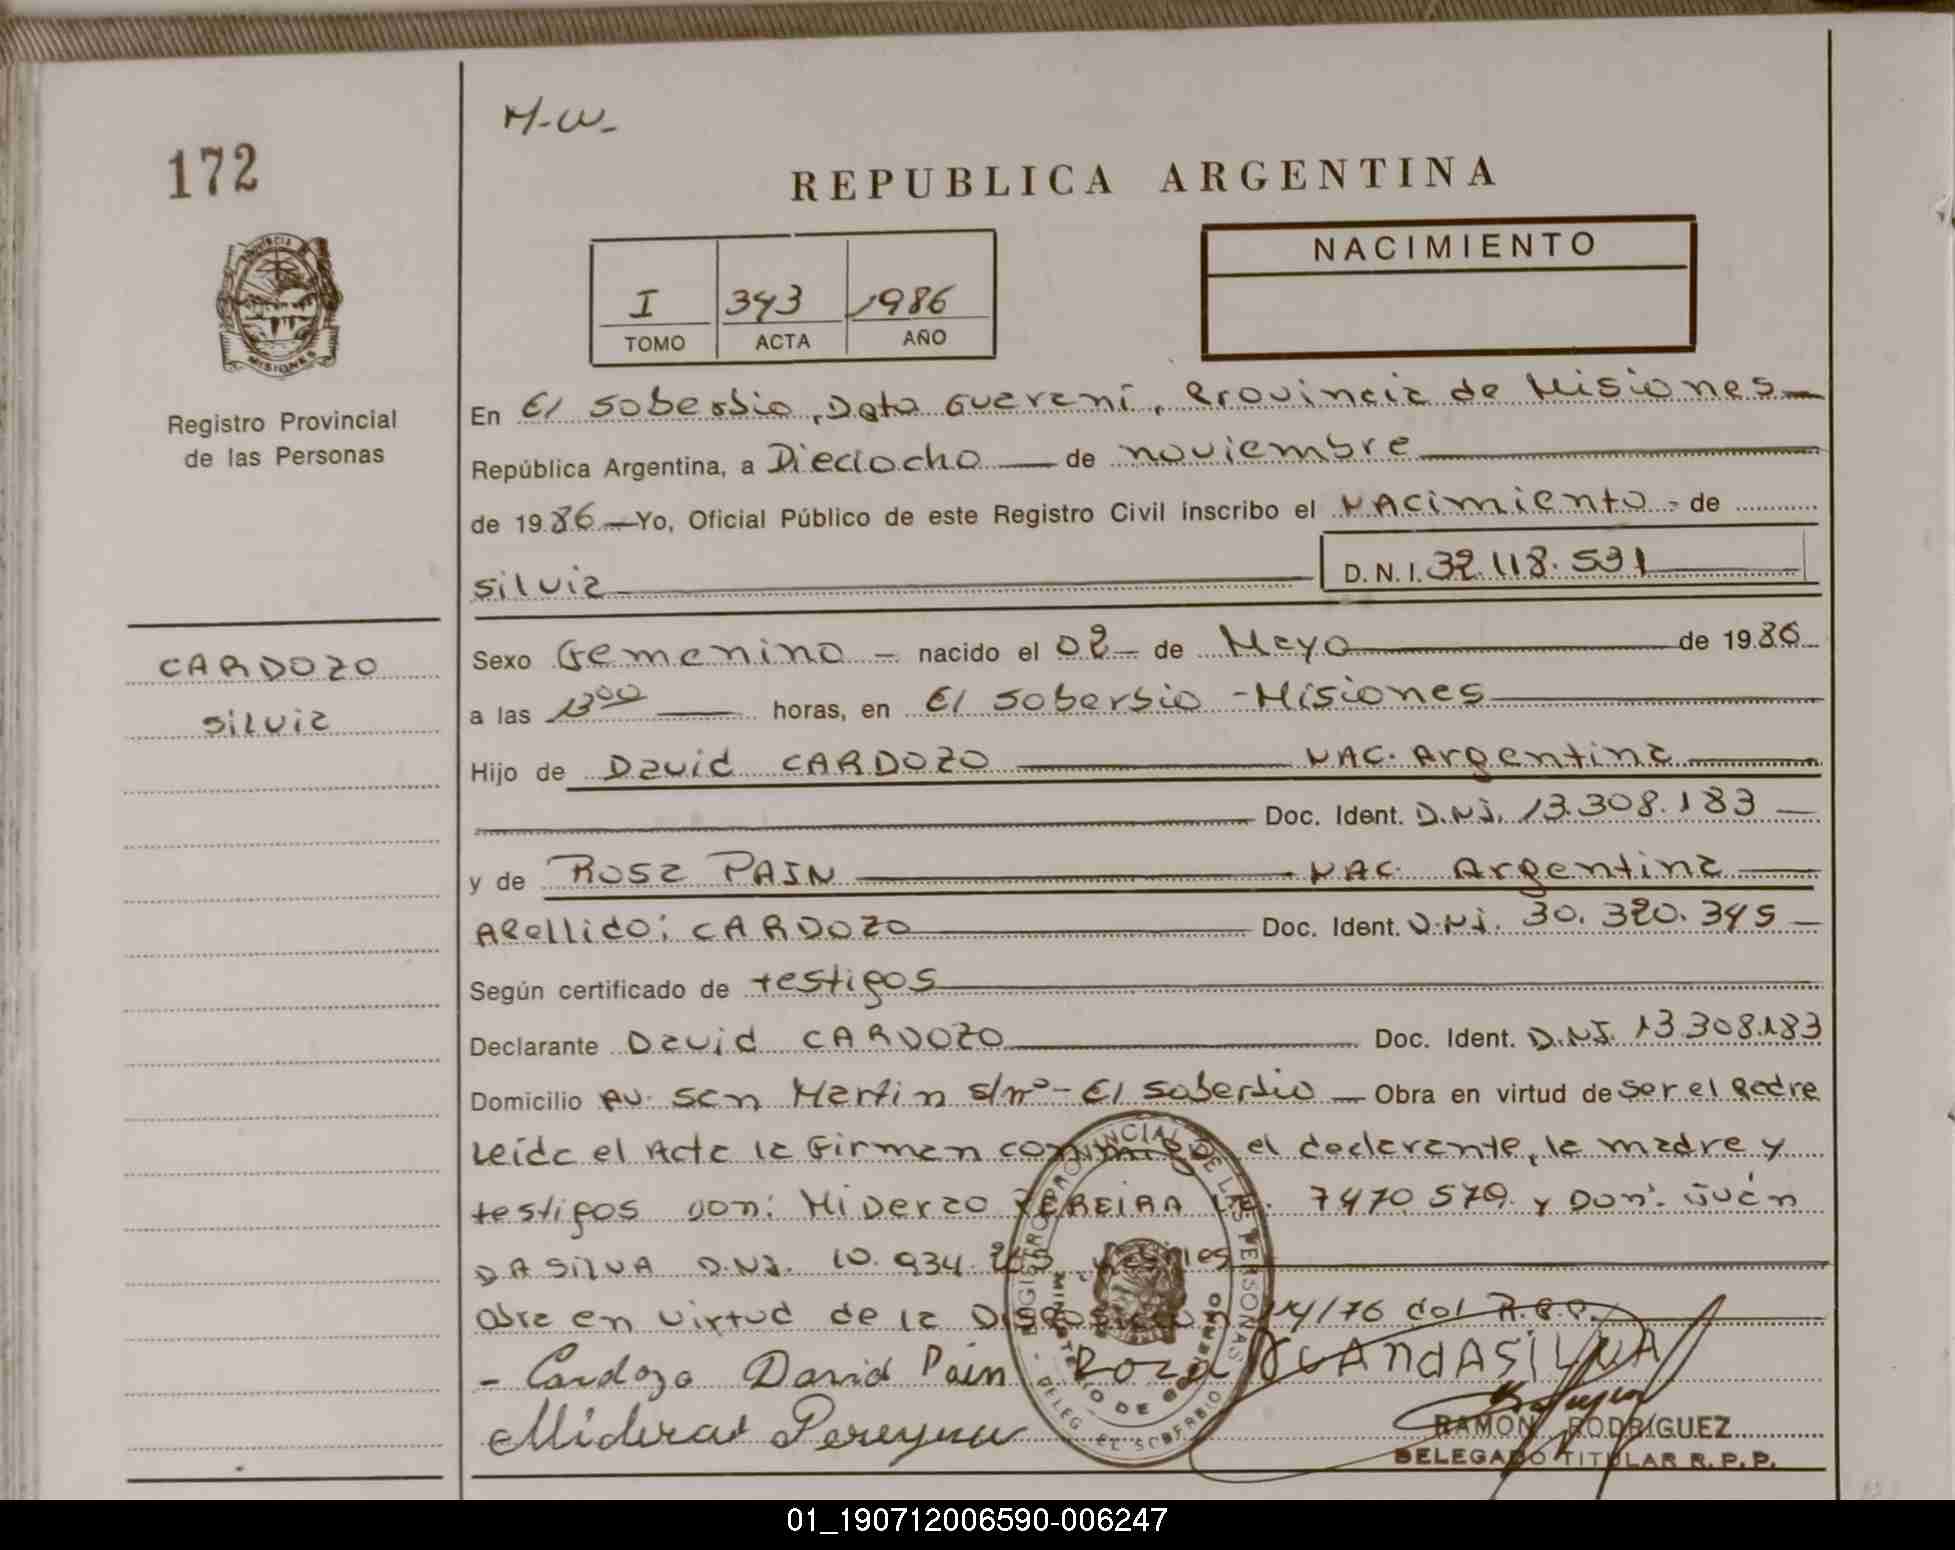 M-W-
172
REPUBLICA ARGENTINA
NACIMIENTO
I 343 1986
TOMO ACTA AÑO
PROVINCIA DE MISIONES
Registro Provincial
de las Personas
En El Soberbio, Dpto Guaraní, Provincia de Misiones
República Argentina, a Dieciocho de noviembre
de 1986 Yo, Oficial Público de este Registro Civil inscribo el Nacimiento de
Silvia D.N.I. 32.118.531
CARDOZO
Silvia
Sexo Femenino - nacido el 02 de Mayo de 1986
a las 13⁰⁰ horas, en El Soberbio - Misiones
Hijo de David CARDOZO NAC. Argentina
Doc. Ident. D.N.I. 13.308.183
y de Rosa PAIN NAC. Argentina
Apellido: CARDOZO Doc. Ident. D.N.I. 30.320.345
Según certificado de testigos
Declarante David CARDOZO Doc. Ident. D.N.I. 13.308.183
Domicilio Av. San Martin s/nº - El Soberbio Obra en virtud de ser el Padre
Leída el Acta la Firman conmigo el declarante, la madre y
testigos don: Miderzo PEREIRA L.E. 7470.579 y Don: Juán
DA SILVA D.N.I. 10.934.
Obra en virtud de la Disposición 14/76 del R.P.P.
- Cardozo David Pain Roza JUANDASILVA
Miderat Pereyra
REGISTRO PROVINCIAL DE LAS PERSONAS
MINISTERIO DE GOBIERNO
DELEG. EL SOBERBIO
RAMON RODRIGUEZ
DELEGADO TITULAR R.P.P.
01_190712006590-006247